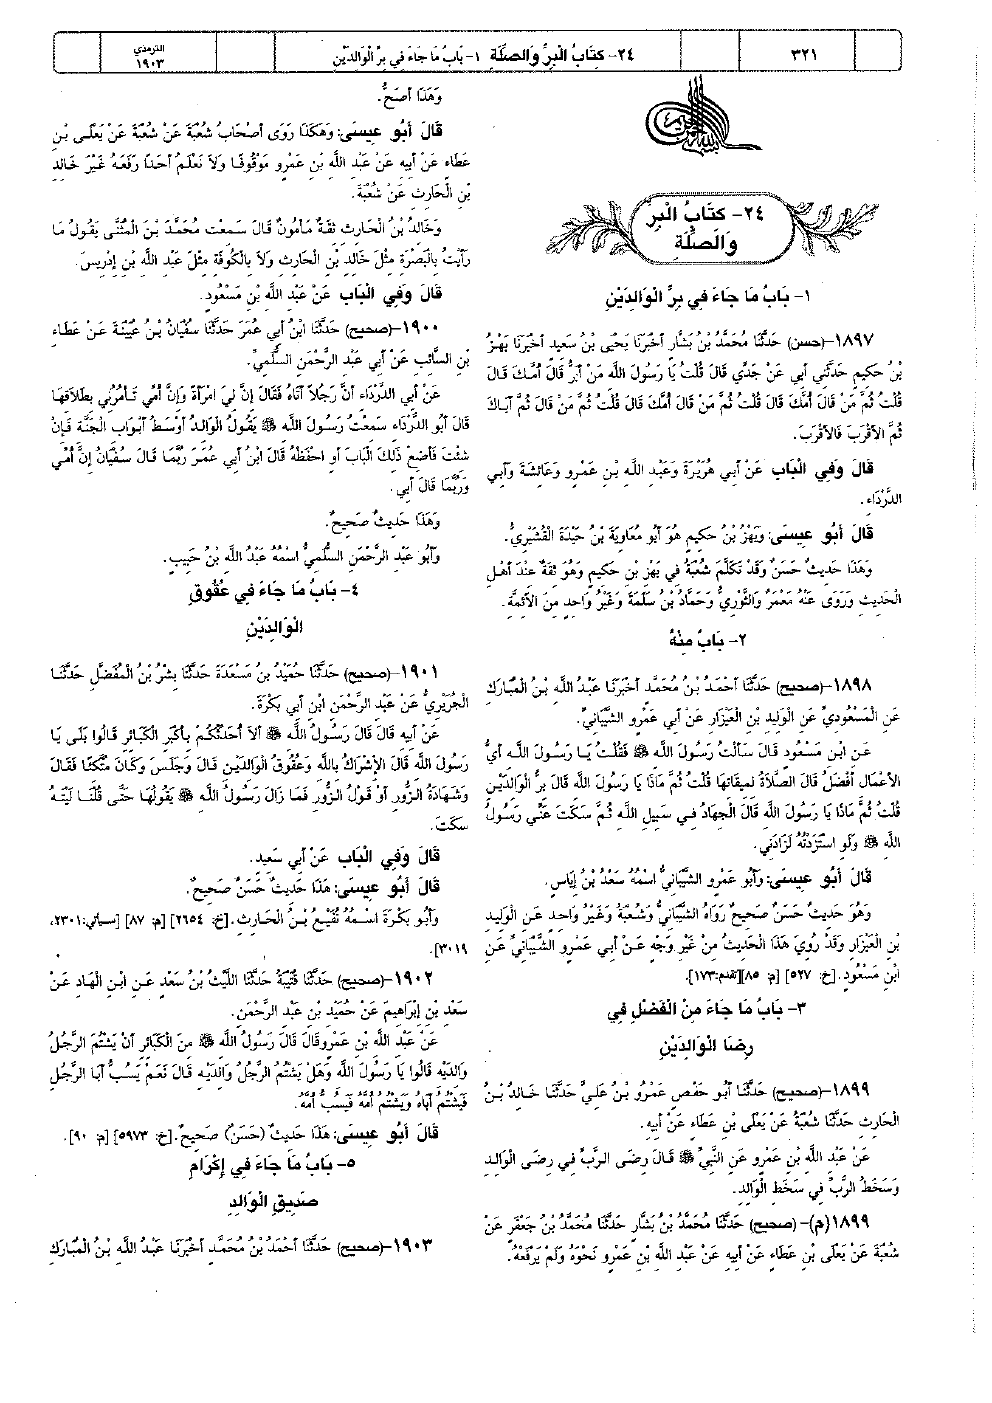 ٣٢١
٢٤- كتَابُ الْبِرِّ وَالصِّلَةِ ١- بَابُ مَا جَاءَ فِي بِرِّ الْوَالِدَيْنِ
الترمذي
١٩٠٣
٢٤- كتَابُ الْبِرِّ
وَالصِّلَةِ
١- بَابُ مَا جَاءَ فِي بِرِّ الْوَالِدَيْنِ
١٨٩٧-(حسن) حَدَّثَنَا مُحَمَّدُ بْنُ بَشَّارٍ أخْبَرَنَا يَحْيَى بْنُ سَعِيدٍ أخْبَرَنَا بَهْزُ
بْنُ حَكِيمٍ حَدَّثَنِي أبِي عَنْ جَدِّي قَالَ قُلْتُ يَا رَسُولَ اللَّه مَنْ أبَرُّ قَالَ أُمَّكَ قَالَ
قُلْتُ ثُمَّ مَنْ قَالَ أُمَّكَ قَالَ قُلْتُ ثُمَّ مَنْ قَالَ أُمَّكَ قَالَ قُلْتُ ثُمَّ مَنْ قَالَ ثُمَّ أبَاكَ
ثُمَّ الأقْرَبَ فَالأقْرَبَ.
قَالَ وَفِي الْبَاب عَنْ أبِي هُرَيْرَةَ وَعَبْدِ اللَّهِ بْنِ عَمْرٍو وَعَائِشَةَ وَأبِي
الدَّرْدَاءِ.
قَالَ أبُو عِيسَى: وَبَهْزُ بْنُ حَكِيمٍ هُوَ أبُو مُعَاوِيَةَ بْنُ حَيْدَةَ الْقُشَيْرِيُّ.
وَهَذَا حَدِيثٌ حَسَنٌ وَقَدْ تَكَلَّمَ شُعْبَةُ فِي بَهْزِ بْنِ حَكِيمٍ وَهُوَ ثِقَةٌ عِنْدَ أهْلِ
الْحَدِيثِ وَرَوَى عَنْهُ مَعْمَرٌ وَالثَّوْرِيُّ وَحَمَّادُ بْنُ سَلَمَةَ وَغَيْرُ وَاحِدٍ مِنَ الأئِمَّةِ.
٢- بَابُ مِنْهُ
١٨٩٨-(صحيح) حَدَّثَنَا أحْمَدُ بْنُ مُحَمَّدٍ أخْبَرَنَا عَبْدُ اللَّهِ بْنُ الْمُبَارَكِ
عَنِ الْمَسْعُودِيِّ عَنِ الْوَلِيدِ بْنِ الْعَيْزَارِ عَنْ أبِي عَمْرٍو الشَّيْبَانِيِّ.
عَنِ ابْنِ مَسْعُودٍ قَالَ سَألْتُ رَسُولَ اللَّهِ ﷺ فَقُلْتُ يَا رَسُولَ اللَّهِ أيُّ
الأعْمَالِ أفْضَلُ قَالَ الصَّلاَةُ لِمِيقَاتِهَا قُلْتُ ثُمَّ مَاذَا يَا رَسُولَ اللَّهِ قَالَ بِرُّ الْوَالِدَيْنِ
قُلْتُ ثُمَّ مَاذَا يَا رَسُولَ اللَّهِ قَالَ الْجِهَادُ فِي سَبِيلِ اللَّهِ ثُمَّ سَكَتَ عَنِّي رَسُولُ
اللَّهِ ﷺ وَلَوِ اسْتَزَدْتُهُ لَزَادَنِي.
قَالَ أبُو عِيسَى: وَأبُو عَمْرٍو الشَّيْبَانِيُّ اسْمُهُ سَعْدُ بْنُ إيَاسٍ.
وَهُوَ حَدِيثٌ حَسَنٌ صَحِيحٌ رَوَاهُ الشَّيْبَانِيُّ وَشُعْبَةُ وَغَيْرُ وَاحِدٍ عَنِ الْوَلِيدِ
بْنِ الْعَيْزَارِ وَقَدْ رُوِيَ هَذَا الْحَدِيثُ مِنْ غَيْرِ وَجْهٍ عَنْ أبِي عَمْرٍو الشَّيْبَانِيِّ عَنِ
ابْنِ مَسْعُودٍ.[خ: ٥٢٧] [م: ٨٥][تقدم:١٧٣].
٣- بَابُ مَا جَاءَ مِنَ الْفَضْلِ فِي
رِضَا الْوَالِدَيْنِ
١٨٩٩-(صحيح) حَدَّثَنَا أبُو حَفْصٍ عَمْرُو بْنُ عَلِيٍّ حَدَّثَنَا خَالِدُ بْنُ
الْحَارِثِ حَدَّثَنَا شُعْبَةُ عَنْ يَعْلَى بْنِ عَطَاءٍ عَنْ أبِيهِ.
عَنْ عَبْدِ اللَّهِ بْنِ عَمْرٍو عَنِ النَّبِيِّ ﷺ قَالَ رِضَى الرَّبِّ فِي رِضَى الْوَالِدِ
وَسَخَطُ الرَّبِّ فِي سَخَطِ الْوَالِدِ.
١٨٩٩(م)- (صحيح) حَدَّثَنَا مُحَمَّدُ بْنُ بَشَّارٍ حَدَّثَنَا مُحَمَّدُ بْنُ جَعْفَرٍ عَنْ
شُعْبَةَ عَنْ يَعْلَى بْنِ عَطَاءٍ عَنْ أبِيهِ عَنْ عَبْدِ اللَّهِ بْنِ عَمْرٍو نَحْوَهُ وَلَمْ يَرْفَعْهُ.
وَهَذَا أصَحُّ.
قَالَ أبُو عِيسَى: وَهَكَذَا رَوَى أصْحَابُ شُعْبَةَ عَنْ شُعْبَةَ عَنْ يَعْلَى بْنِ
عَطَاءٍ عَنْ أبِيهِ عَنْ عَبْدِ اللَّهِ بْنِ عَمْرٍو مَوْقُوفًا وَلاَ نَعْلَمُ أحَدًا رَفَعَهُ غَيْرَ خَالِدِ
بْنِ الْحَارِثِ عَنْ شُعْبَةَ.
وَخَالِدُ بْنُ الْحَارِثِ ثِقَةٌ مَأْمُونٌ قَالَ سَمِعْت مُحَمَّدَ بْنَ الْمُثَنَّى يَقُولُ مَا
رَأيْتُ بِالْبَصْرَةِ مِثْلَ خَالِدِ بْنِ الْحَارِثِ وَلاَ بِالْكُوفَةِ مِثْلَ عَبْدِ اللَّهِ بْنِ إدْرِيسَ.
قَالَ وَفِي الْبَاب عَنْ عَبْدِ اللَّهِ بْنِ مَسْعُودٍ.
١٩٠٠-(صحيح) حَدَّثَنَا ابْنُ أبِي عُمَرَ حَدَّثَنَا سُفْيَانُ بْنُ عُيَيْنَةَ عَنْ عَطَاءِ
بْنِ السَّائِبِ عَنْ أبِي عَبْدِ الرَّحْمَنِ السُّلَمِيِّ.
عَنْ أبِي الدَّرْدَاءِ أنَّ رَجُلاً أتَاهُ فَقَالَ إنَّ لِيَ امْرَأةً وَإنَّ أُمِّي تَأْمُرُنِي بِطَلاَقِهَا
قَالَ أبُو الدَّرْدَاءِ سَمِعْتُ رَسُولَ اللَّهِ ﷺ يَقُولُ الْوَالِدُ أوْسَطُ أبْوَابِ الْجَنَّةِ فَإنْ
شِئْتَ فَأضِعْ ذَلِكَ الْبَابَ أوِ احْفَظْهُ قَالَ ابْنُ أبِي عُمَرَ رُبَّمَا قَالَ سُفْيَانُ إنَّ أُمِّي
وَرُبَّمَا قَالَ أبِي.
وَهَذَا حَدِيثٌ صَحِيحٌ.
وَأبُو عَبْدِ الرَّحْمَنِ السُّلَمِيُّ اسْمُهُ عَبْدُ اللَّهِ بْنُ حَبِيبٍ.
٤- بَابُ مَا جَاءَ فِي عُقُوقِ
الْوَالِدَيْنِ
١٩٠١-(صحيح) حَدَّثَنَا حُمَيْدُ بْنُ مَسْعَدَةَ حَدَّثَنَا بِشْرُ بْنُ الْمُفَضَّلِ حَدَّثَنَا
الْجُرَيْرِيُّ عَنْ عَبْدِ الرَّحْمَنِ ابْنِ أبِي بَكْرَةَ.
عَنْ أبِيهِ قَالَ قَالَ رَسُولُ اللَّهِ ﷺ ألاَ أُحَدِّثُكُمْ بِأكْبَرِ الْكَبَائِرِ قَالُوا بَلَى يَا
رَسُولَ اللَّهِ قَالَ الإشْرَاكُ بِاللَّهِ وَعُقُوقُ الْوَالِدَيْنِ قَالَ وَجَلَسَ وَكَانَ مُتَّكِئًا فَقَالَ
وَشَهَادَةُ الزُّورِ أوْ قَوْلُ الزُّورِ فَمَا زَالَ رَسُولُ اللَّهِ ﷺ يَقُولُهَا حَتَّى قُلْنَا لَيْتَهُ
سَكَتَ.
قَالَ وَفِي الْبَاب عَنْ أبِي سَعِيدٍ.
قَالَ أبُو عِيسَى: هَذَا حَدِيثٌ حَسَنٌ صَحِيحٌ.
وَأبُو بَكْرَةَ اسْمُهُ نُفَيْعُ بْنُ الْحَارِثِ.[خ: ٢٦٥٤] [م: ٨٧] [سيأتي:٢٣٠١،
٣٠١٩].
١٩٠٢-(صحيح) حَدَّثَنَا قُتَيْبَةُ حَدَّثَنَا اللَّيْثُ بْنُ سَعْدٍ عَنِ ابْنِ الْهَادِ عَنْ
سَعْدِ بْنِ إبْرَاهِيمَ عَنْ حُمَيْدِ بْنِ عَبْدِ الرَّحْمَنِ.
عَنْ عَبْدِ اللَّهِ بْنِ عَمْرٍوقَالَ قَالَ رَسُولُ اللَّهِ ﷺ مِنَ الْكَبَائِرِ أنْ يَشْتُمَ الرَّجُلُ
وَالِدَيْهِ قَالُوا يَا رَسُولَ اللَّهِ وَهَلْ يَشْتُمُ الرَّجُلُ وَالِدَيْهِ قَالَ نَعَمْ يَسُبُّ أبَا الرَّجُلِ
فَيَشْتُمُ أبَاهُ وَيَشْتُمُ أُمَّهُ فَيَسُبُّ أُمَّهُ.
قَالَ أبُو عِيسَى: هَذَا حَدِيثٌ (حَسَنٌ) صَحِيحٌ.[خ: ٥٩٧٣] [م: ٩٠].
٥- بَابُ مَا جَاءَ فِي إكْرَامِ
صَدِيقِ الْوَالِدِ
١٩٠٣-(صحيح) حَدَّثَنَا أحْمَدُ بْنُ مُحَمَّدٍ أخْبَرَنَا عَبْدُ اللَّهِ بْنُ الْمُبَارَكِ